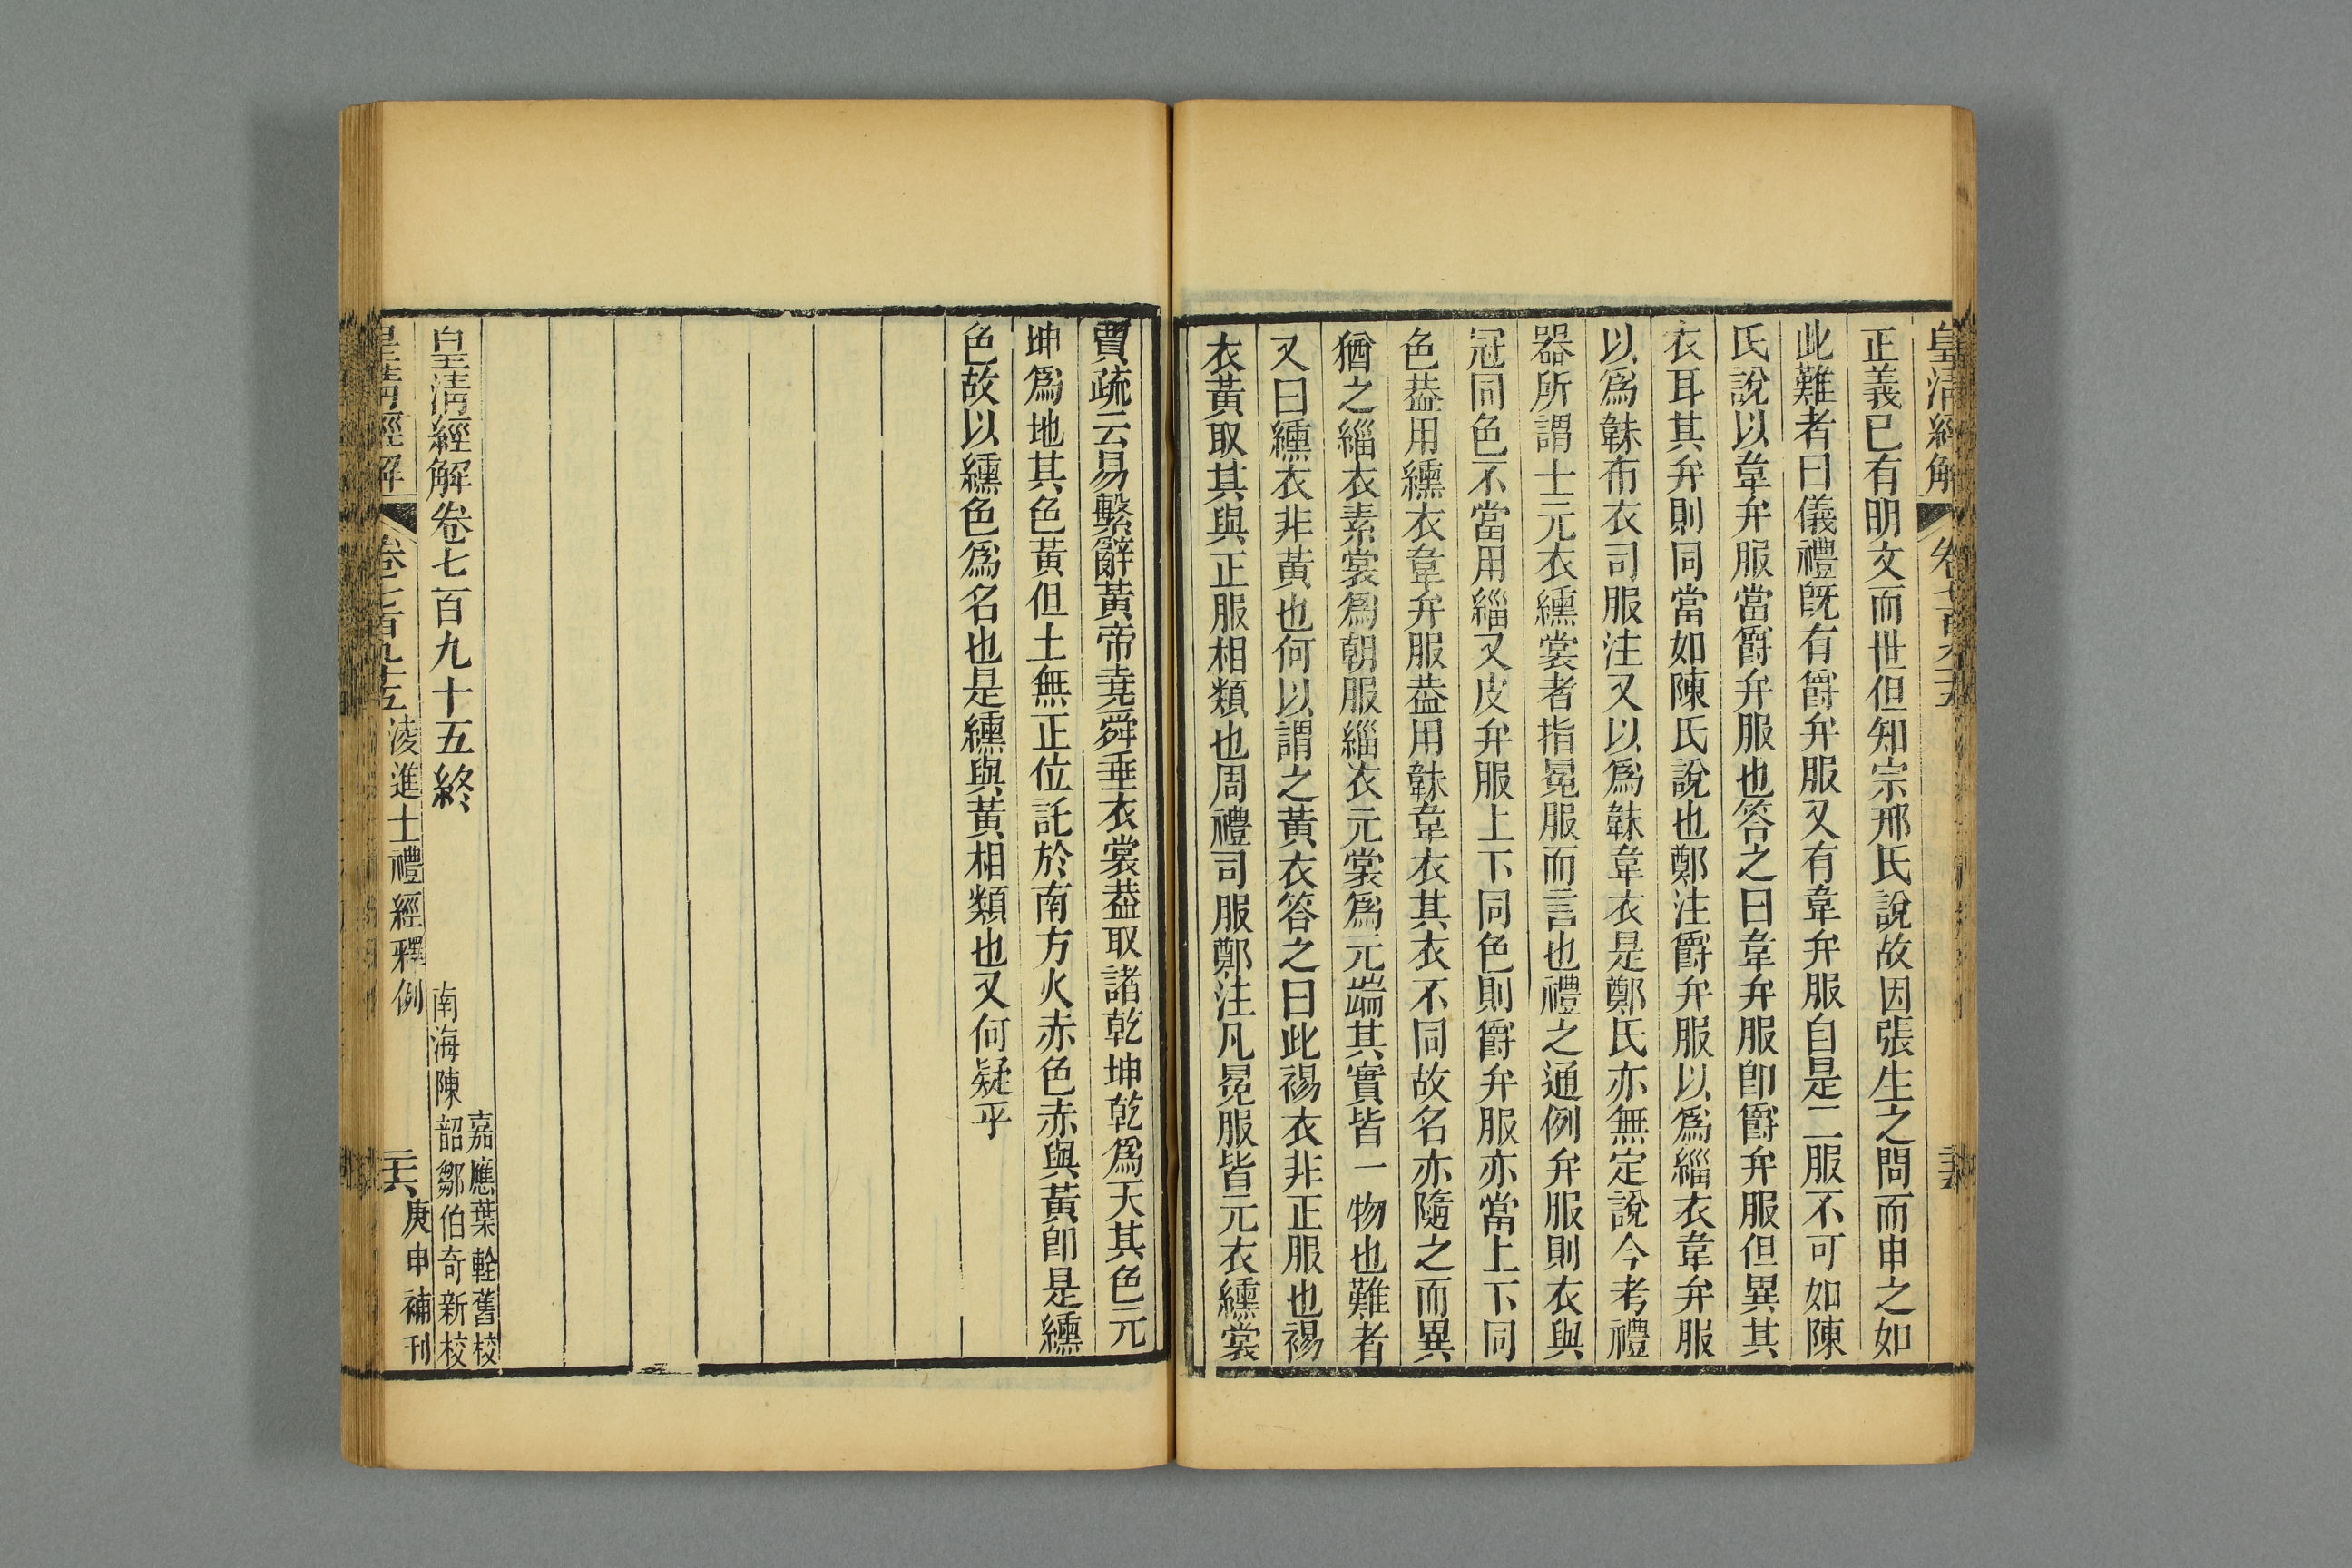 皇清經解
卷七百九十五
正義已有明文而世但知宗邢氏說故因張生之問而申之如
此難者曰儀禮旣有爵弁服又有韋弁服自是二服不可如陳
氏說以韋弁服當爵弁服也答之曰韋弁服卽爵弁服但異其
衣耳其弁則同當如陳氏說也鄭注爵弁服以爲緇衣韋弁服
以爲韎布衣司服注又以爲韎韋衣是鄭氏亦無定說今考禮
器所謂士元衣纁裳者指冕服而言也禮之通例弁服則衣與
冠同色不當用緇又皮弁服上下同色則爵弁服亦當上下同
色葢用纁衣韋弁服葢用韎韋衣其衣不同故名亦隨之而異
猶之緇衣素裳爲朝服緇衣元裳爲元端其實皆一物也難者
又曰纁衣非黃也何以謂之黃衣答之曰此裼衣非正服也裼
衣黃取其與正服相類也周禮司服鄭注凡冕服皆元衣纁裳
賈疏云易繫辭黃帝堯舜垂衣裳葢取諸乾坤乾爲天其色元
坤爲地其色黃但土無正位託於南方火赤色赤與黃卽是纁
色故以纁色爲名也是纁與黃相類也又何疑乎
皇清經解卷七百九十五終
嘉應葉輇舊校
南海陳韶鄒伯奇新校
皇清經解
卷七百九十五
淩進士禮經釋例
庚申補刊